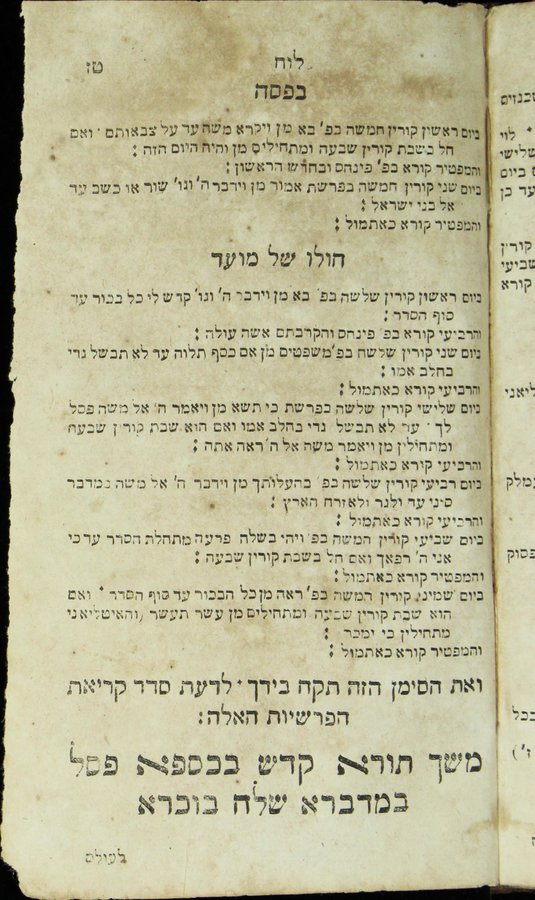 לוח
טז
בפסח
ביום ראשין קורין חמשה בפ' בא מן ויקרא משה עד על צבאותם · ואם
חל בשבת קורין שבעה ומתחילים מן והיה היום הזה :
והמפטיר קורא בפ' פינחס ובחדש הראשון :
ביום שני קורין חמשה בפרשת אמור מן וידבר ה' וגו' שור או כשב עד
אל בני ישראל :
והמפטיר קורא כאתמול :
חולו של מועד
ביום ראשון קורין שלשה בפ' בא מן וידבר ה' וגו' קדש לי כל בכור עד
סוף הסדר :
והרביעי קורא בפ' פינחס והקרבתם אשה עולה :
ביום שני קורין שלשה בפ' משפטים מן אם כסף תלוה עד לא תבשל גדי
בחלב אמו :
והרביעי קורא כאתמול :
ביום שלישי קורין שלשה בפרשת כי תשא מן ויאמר ה' אל משה פסל
לך · עד לא תבשל גדי בחלב אמו ואם הוא שבת קורין שבעה
ומתחילין מן ויאמר משה אל ה' ראה אתה :
והרביעי קורא כאתמול :
ביום רביעי קורין שלשה בפ' בהעלותך מן וידבר ה' אל משה במדבר
סיני עד ולגר ולאזרח הארץ :
והרביעי קורא כאתמול :
ביום שביעי קורין חמשה בפ' ויהי בשלח פרעה מתחלת הסדר עד כי
אני ה' רפאך ואם חל בשבת קורין שבעה :
והמפטיר קורא כאתמול :
ביום שמיני קורין חמשה בפ' ראה מן כל הבכור עד סוף הסדר · ואם
הוא שבת קורין שבעה ומתחילים מן עשר תעשר (והאיטליאני
מתחילין כי ימכר :
והמפטיר קורא כאתמול :
ואת הסימן הזה תקח בידך · לדעת סדר קריאת
הפרשיות האלה :
משך תורא קדש בכספא פסל
במדברא שלח בוכרא
לעולם
שכנזים
לוי
שלישי
ביום
עד כן
קורין
שביעי
קורא
ליאני
עמלק
פסוק
בכל
ז')